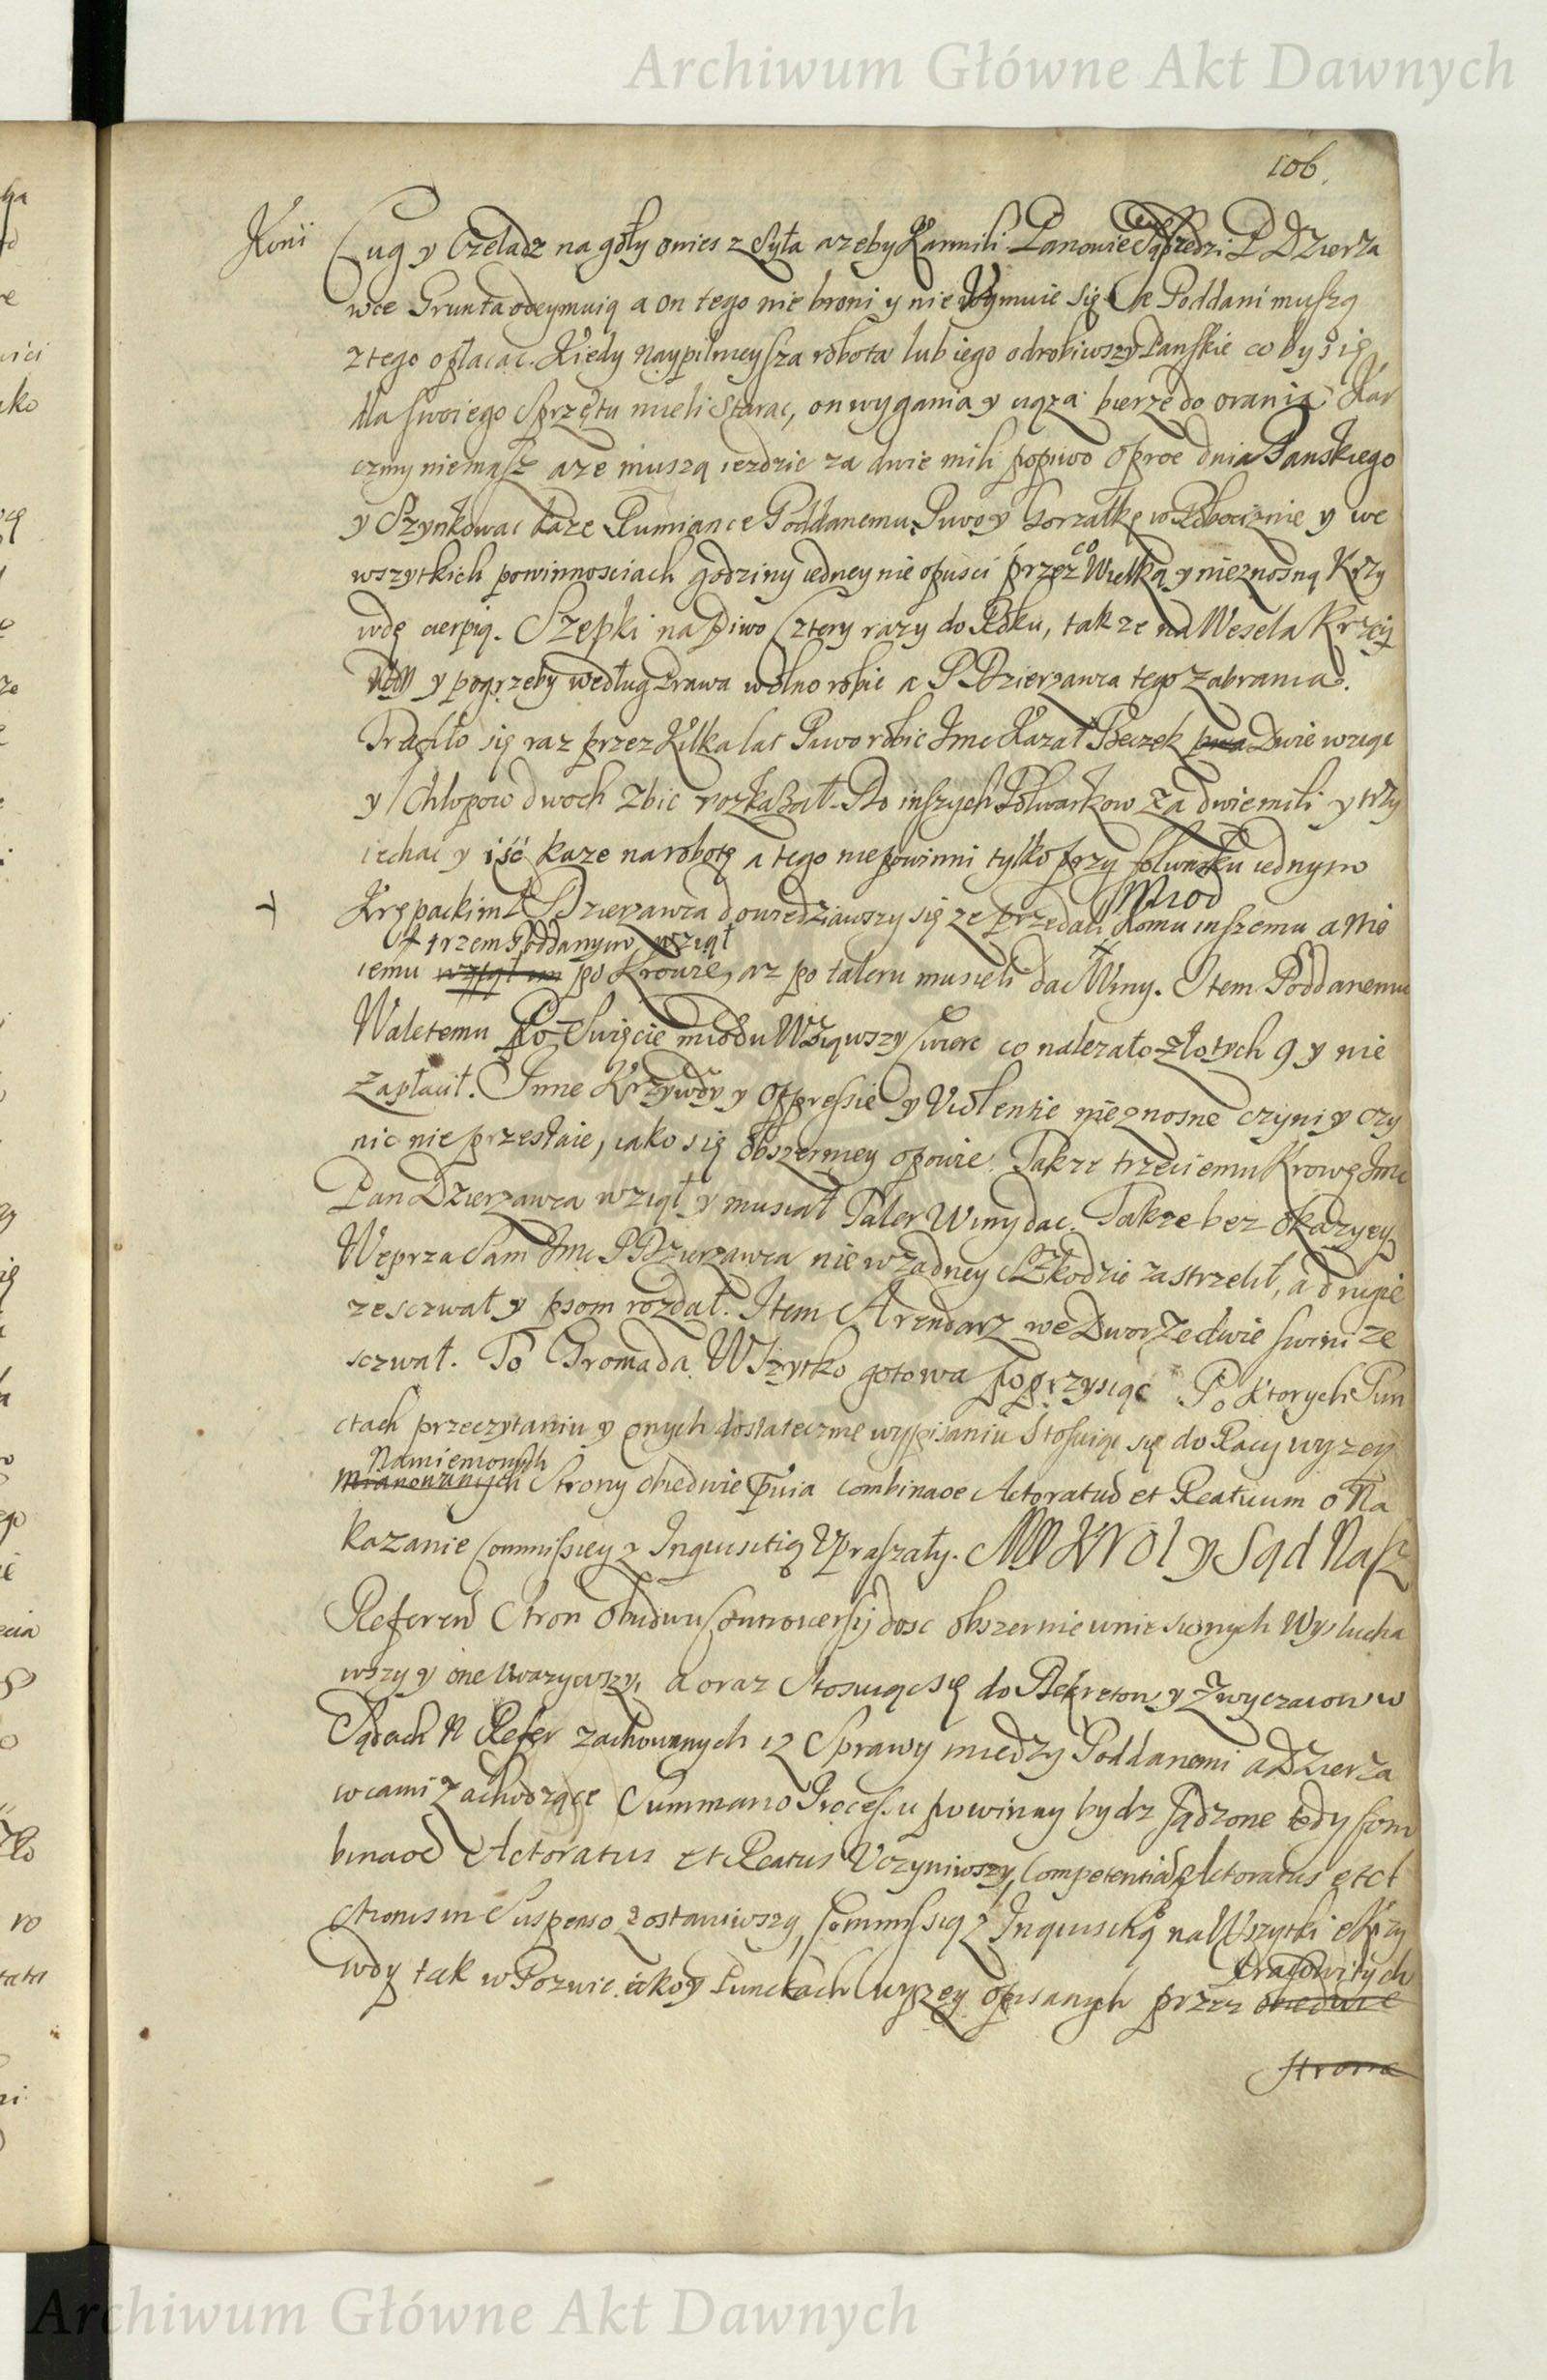 Archiwum Główne Akt Dawnych
106.
Koni Cug y Czeladz na goły owies zsyła azeby Karmili Panowie Sąsiedzi P Dzierza
wce Grunta odeymuią a on tego nie broni y nie Uymuie się a Poddani muszą
z tego opłacac. Kiedy Naypilnieysza robota lub iego odrobiwszy Panskie coby się
dla swoiego Sprzętu mieli starac, on wygania y uązą bierze do orania Kar
czmy niemasz aże muszą iezdzic za dwie mili po piwo oproc dnia Panskiego
y Szynkowac kaze Rumiance Poddanemu Piwo y Gorzałkę w Robociznie y we
wszytkich powinnosciach godziny iedney nie opusci przez co Wielką y nieznosną Krzy
wdę cierpią. Szepki na Piwo Cztery razy do Roku, takze na Wesela Krzci
ny y pogrzeby według Prawa wolno robic a P Dzierzawca tego zabrania.
Trafiło się raz przez Kilka lat Piwo robic Imc Kazał Beczek Dwie wziąc
y Chłopow dwoch zbic rozkazał. Do inszych Folwarkow za dwie mili y trzy
iechac y iść kaze na robotę a tego niepowinni tylko przy folwarku iednym
Krępackim P Dzierzawca dowiedziawszy się ze przedali Miod Komu inszemu a nie
+ trzem Poddanym wziął
iemu po Krowie, az po taleru musieli dac Winy. Item Poddanemu
Waletemu Po Swięcie miodu Wziąwszy cwierc co nalezało złotych 9 y nie
zapłacił. Inne Krzywdy y Oppressie y Violentie nieznosne czyni y czy
nic nie przestaie, iako się obszerniey opowie. Takze trzeciemu Krowę Imc
Pan Dzierzawca wziął y musiał Taler Winy dac. Takze bez okazyey
Wieprza Sam Imc P Dzierzawca nie w zadney Szkodzie zastrzelił, a drugie
zesczwał y psom rozdał. Item Arendarz we Dworze dwie swini ze
sczwał. To Gromada Wszytko gotowa poprzysiąc Po Ktorych Pun
ctach przeczytaniu y onych dostatecznie wypisaniu Stosuiąc się do Racy wyzey
Namienionych
Mianowanych Strony obiedwie pvia combinaoe Actoratus et Reatuum o Na
kazanie Commissiey z Inquisitią Upraszały. My Krol y Sąd Nasz
Referend Stron obudwu Controversij dosc obszernie wniesionych Wyslucha
wszy y one Uwazywszy, a oraz Stosuiąc się do Dekretow y zwyczaiow w
Sądach N Refer zachowanych iz Sprawy między Poddanemi a Dzierza
wcami zachodzące Summario Processu powinny bydz sądzone tedy Com
binaoe Actoratus et Reatus Uczyniwszy, Competentią Actoratus et ct
ctionis in Suspenso zostawiwszy, Commissią z Inquisitią na Wszytkie Krzy
wdy tak w Pozwie iako y Punctach wyzey opisanych przez obiedwie
Urodzonych
strona
Archiwum Główne Akt Dawnych